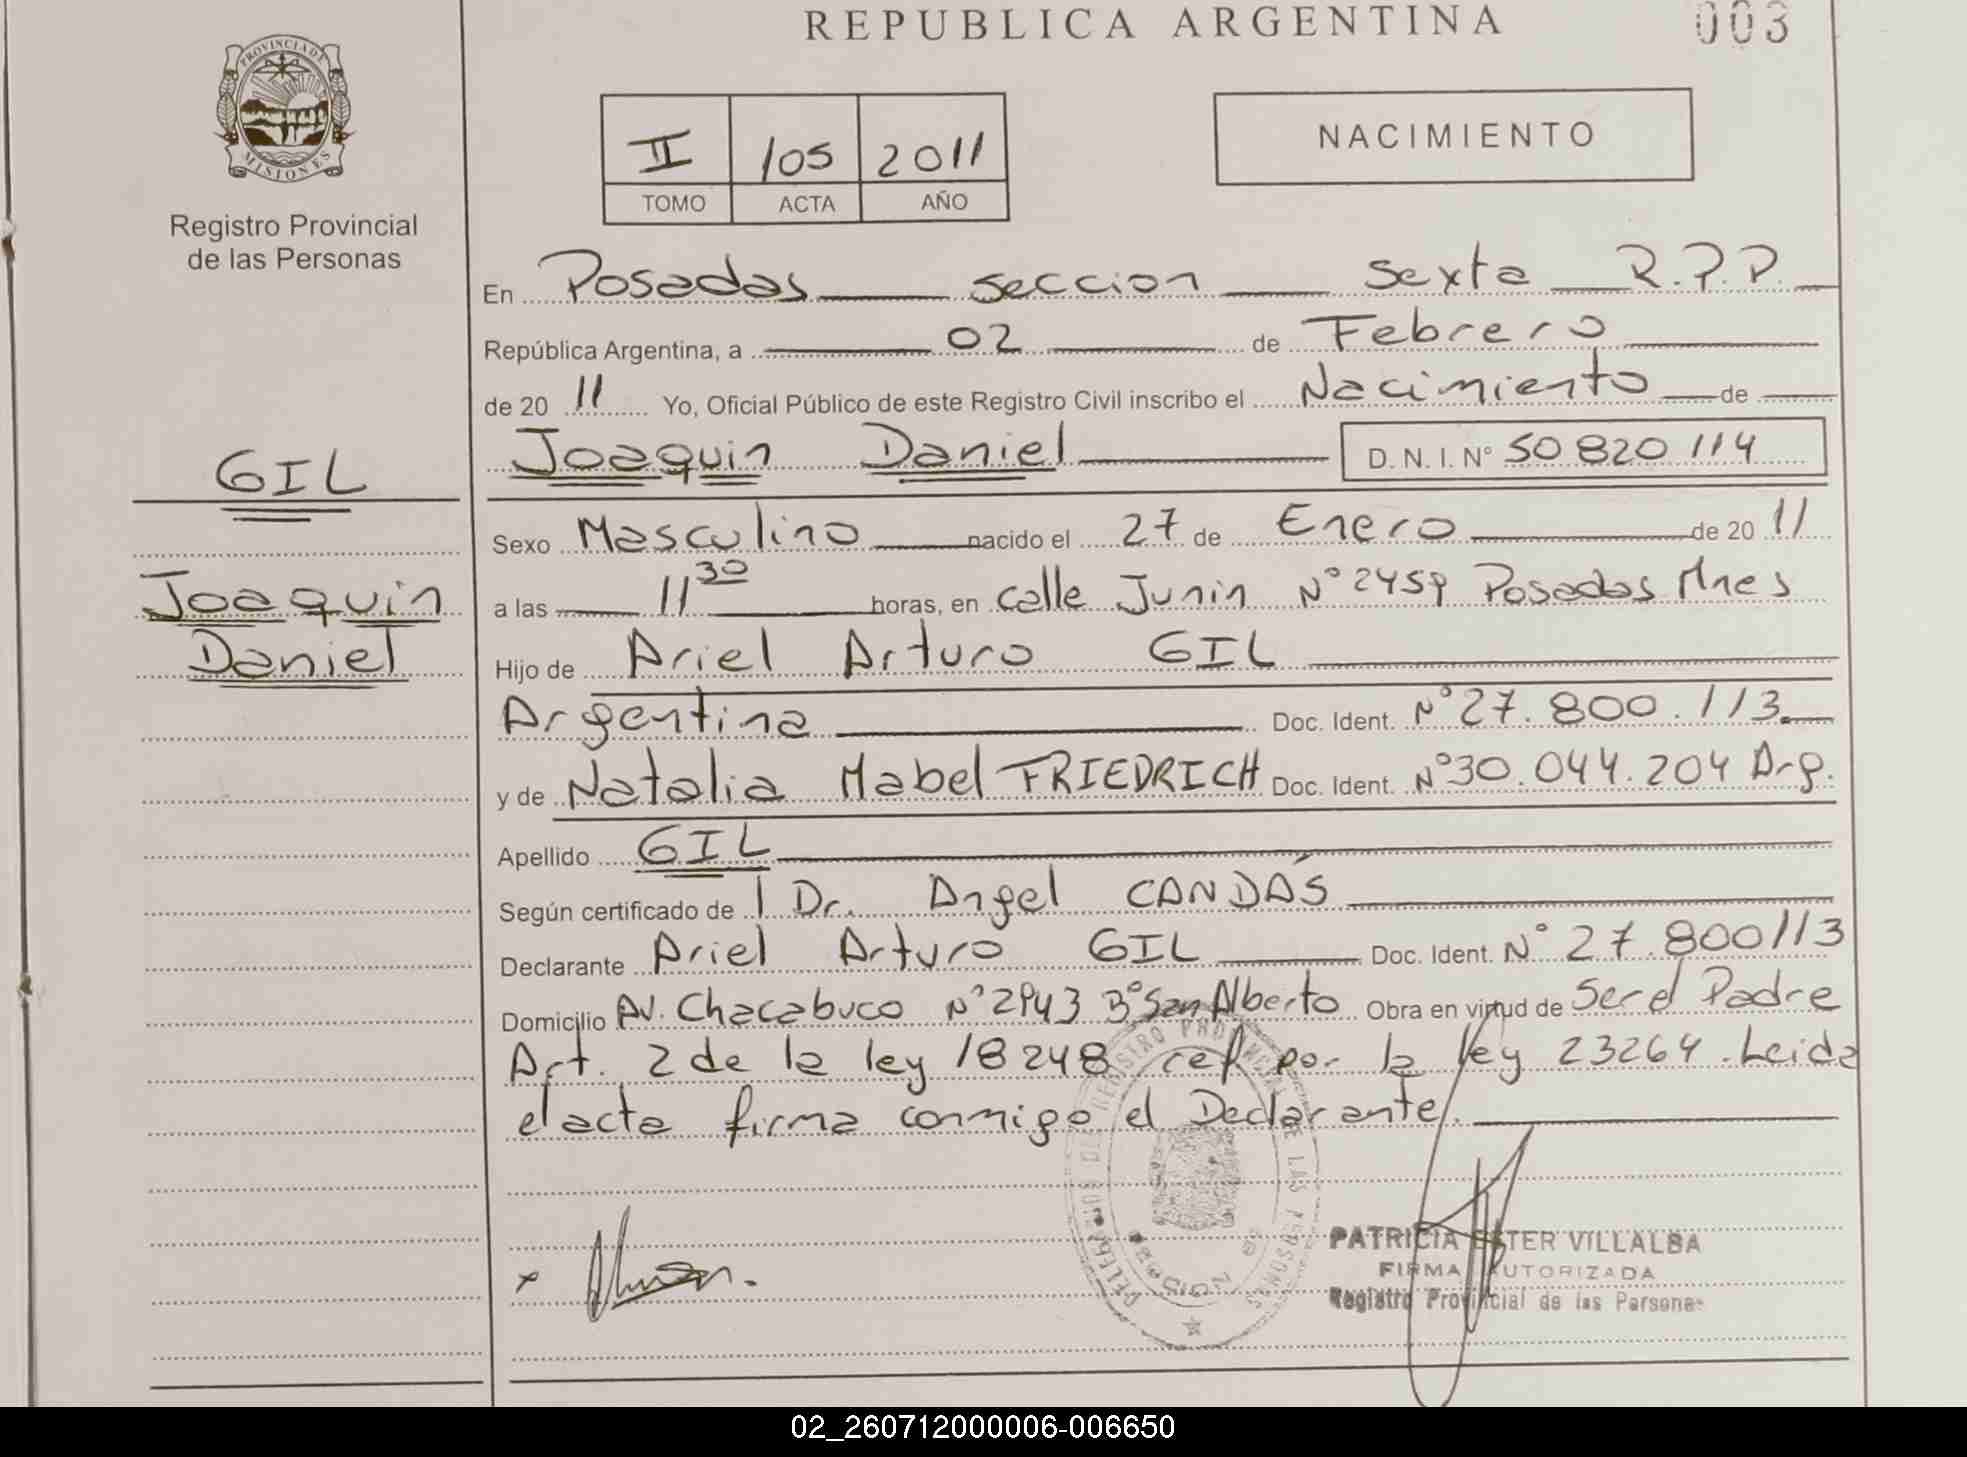 REPUBLICA ARGENTINA
003
PROVINCIA DE
MISIONES
Registro Provincial
de las Personas
II 105 2011
TOMO ACTA AÑO
NACIMIENTO
En Posadas seccion sexta R.P.P.
República Argentina, a 02 de Febrero
de 20 11 Yo, Oficial Público de este Registro Civil inscribo el Nacimiento de
Joaquin Daniel D.N.I. Nº 50 820 114
GIL
Joaquin
Daniel
Sexo Masculino nacido el 27 de Enero de 20 11
a las 11 30 horas, en calle Junin Nº 2459 Posadas Mnes
Hijo de Ariel Arturo GIL
Argentina Doc. Ident. Nº 27.800.113.
y de Natalia Mabel FRIEDRICH Doc. Ident. Nº 30.044.204 Arg.
Apellido GIL
Según certificado de l Dr. Angel CANDÁS
Declarante Ariel Arturo GIL Doc. Ident. Nº 27.800113
Domicilio Av. Chacabuco Nº 2943 Bº San Alberto Obra en virtud de Ser el Padre
Art. 2 de la ley 18248 ref por la ley 23264. Leida
el acta firma conmigo el Declarante.
PATRICIA ESTER VILLALBA
FIRMA AUTORIZADA
Registro Provincial de las Personas
02_260712000006-006650